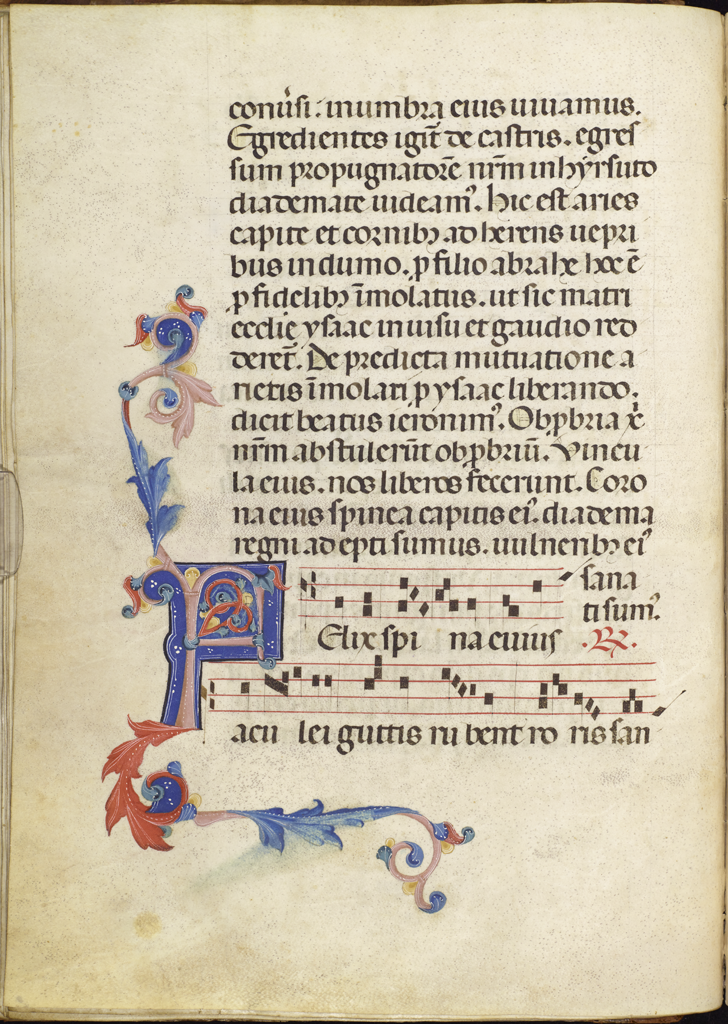 conũsi : in umbra eius uiuamus.
Egredientes igit̃ de castris. egres
sum propugnatorẽ nr̃m in hyrsuto
diademate uideam᾽. hic est aries
capite et cornibꝫ ad herens uepri
bus in dumo. ꝓ filio abrahe hoc ẽ
ꝓ fidelibꝫ ĩmolatus. ut sic matri
ecclie ysaac in uisu et gaudio red
deret̃. De predicta mutuatione a
rietis ĩmolati ꝓ ysaac liberando.
dicit beatus ieronim᾽. Obꝓbria x̃
nr̃m abstulerũt obꝓbriũ. Vincu
la eius. nos liberos fecerunt. Coro
na eius spinea capitis ei᾽. diadema
regni adepti sumus. uulneribꝫ ei᾽
sana
ti sum᾽.
FElix spi na cuius .R̃.
acu lei guttis ru bent ro ris san